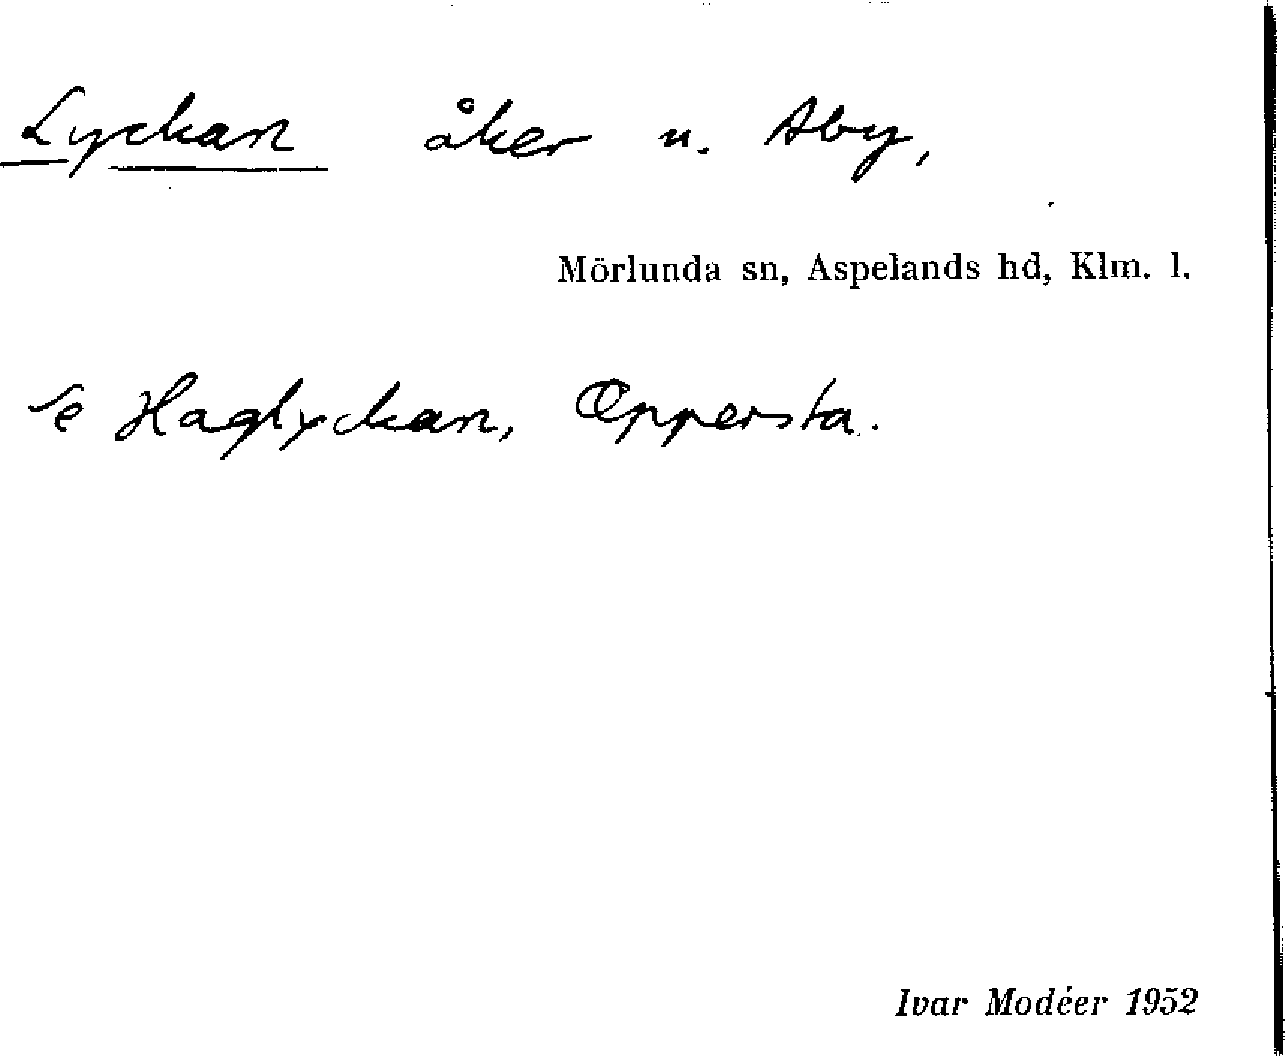 Lyckan åker u. Åby,
Mörlunda sn, Aspelands hd, Klm. l.
Se Haglyckan, Oppersta.
Ivar Modéer 1952